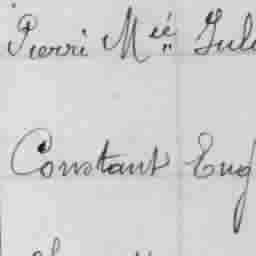 Pierre Mée Jule
Constant Eug